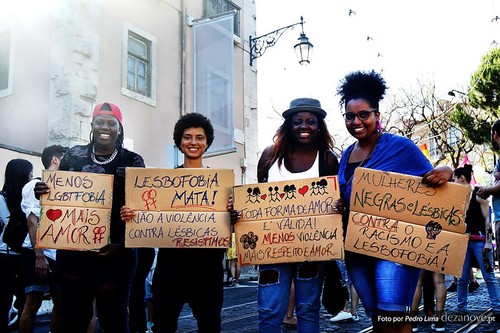 MENOS
LGBTFOBIA
MAIS
AMOR
LESBOFOBIA
MATA!
NÃO À VIOLÊNCIA
CONTRA LÉSBICAS
RESISTIMOS
TODA FORMA DE AMOR
É VÁLIDA!
MENOS VIOLÊNCIA
MAIS RESPEITO E AMOR
MULHERES
NEGRAS e LÉSBICAS
CONTRA O
RACISMO E A
LESBOFOBIA!
Foto por Pedro Lima dezanove.pt